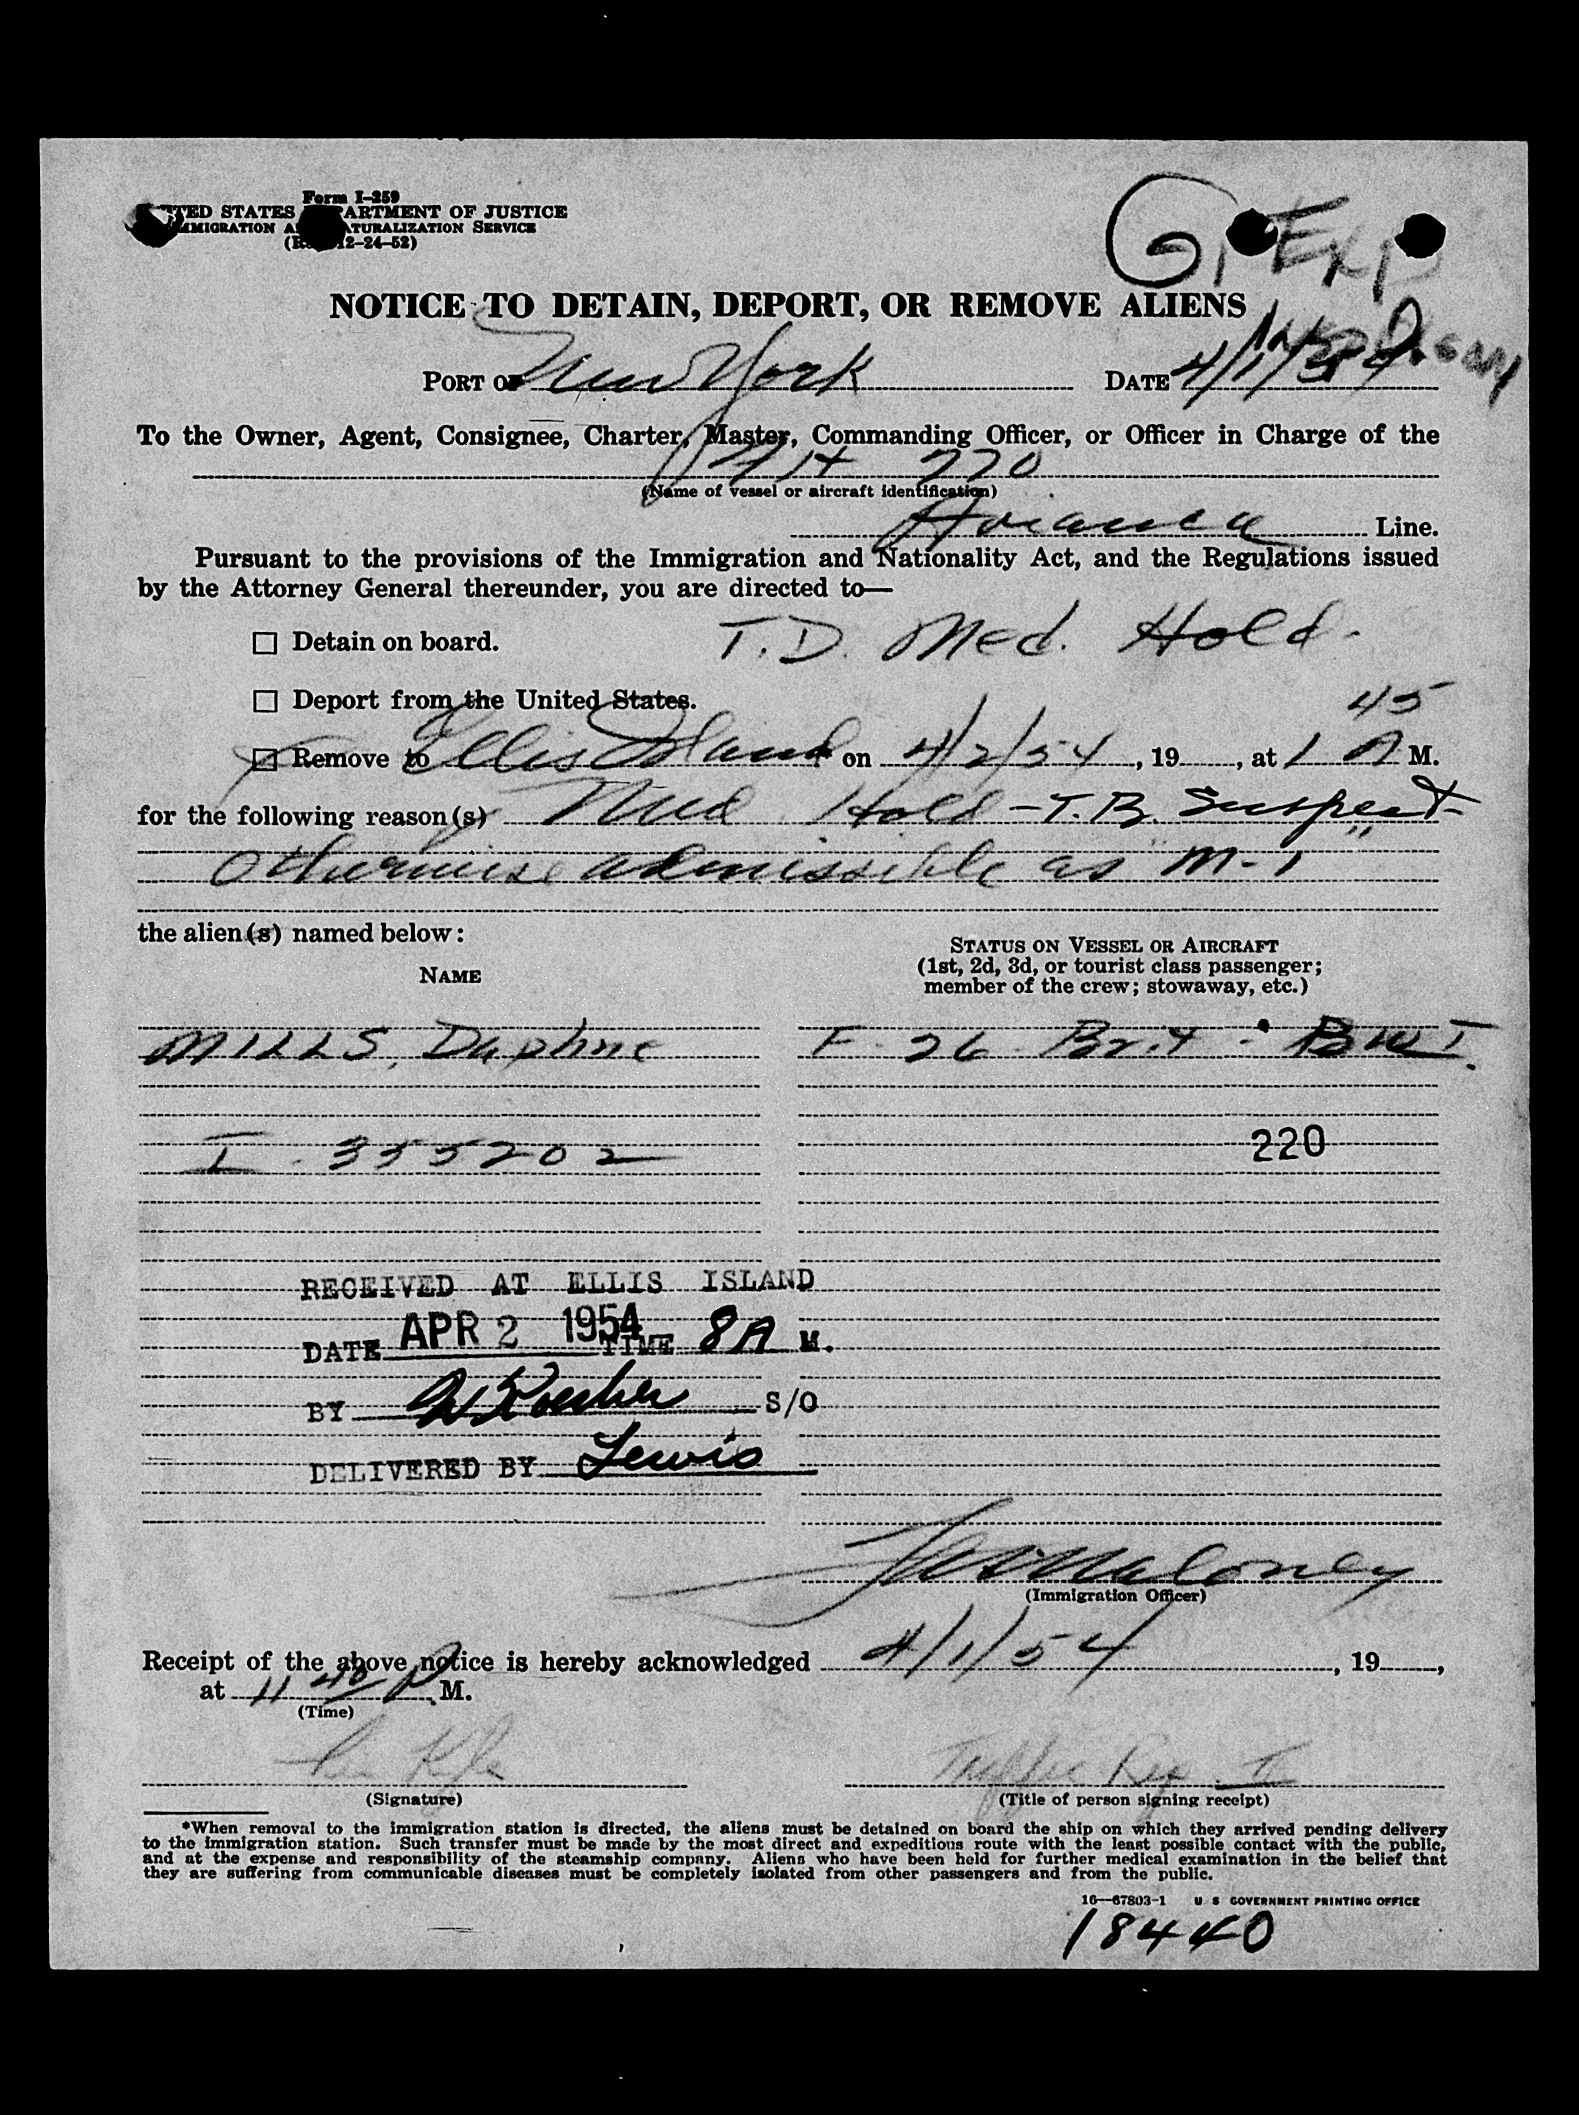 Form I-259
UNITED STATES DEPARTMENT OF JUSTICE
IMMIGRATION AND NATURALIZATION SERVICE
12-24-52)
NOTICE TO DETAIN, DEPORT, OR REMOVE ALIENS
PORT OF New York DATE 4/1/54
To the Owner, Agent, Consignee, Charter, Master, Commanding Officer, or Officer in Charge of the
Flt 770
(Name of vessel or aircraft identification)
Avianca Line.
Pursuant to the provisions of the Immigration and Nationality Act, and the Regulations issued
by the Attorney General thereunder, you are directed to—
☐ Detain on board. T.D. Med. Hold.
☐ Deport from the United States.
☐ Remove to Ellis Island * on 4/2/54, 19 , at 1 45 A M.
for the following reason(s) Med Hold - T.B. Suspect
Otherwise admissible as "M-1"
the alien(s) named below:
STATUS ON VESSEL OR AIRCRAFT
NAME
(1st, 2d, 3d, or tourist class passenger;
member of the crew; stowaway, etc.)
MILLS, Daphne F - 26 - Brit - BWI.
I - 355202 220
RECEIVED AT ELLIS ISLAND
DATE APR 2 1954 TIME 8 A M.
BY S/O
DELIVERED BY Lewis
Maloney
(Immigration Officer)
Receipt of the above notice is hereby acknowledged 4/1/54, 19 ,
at 11 40 P. M.
(Time)
Traffic Rep.
(Signature) (Title of person signing receipt)
*When removal to the immigration station is directed, the aliens must be detained on board the ship on which they arrived pending delivery
to the immigration station. Such transfer must be made by the most direct and expeditious route with the least possible contact with the public,
and at the expense and responsibility of the steamship company. Aliens who have been held for further medical examination in the belief that
they are suffering from communicable diseases must be completely isolated from other passengers and from the public.
16—67803-1 U S GOVERNMENT PRINTING OFFICE
18440